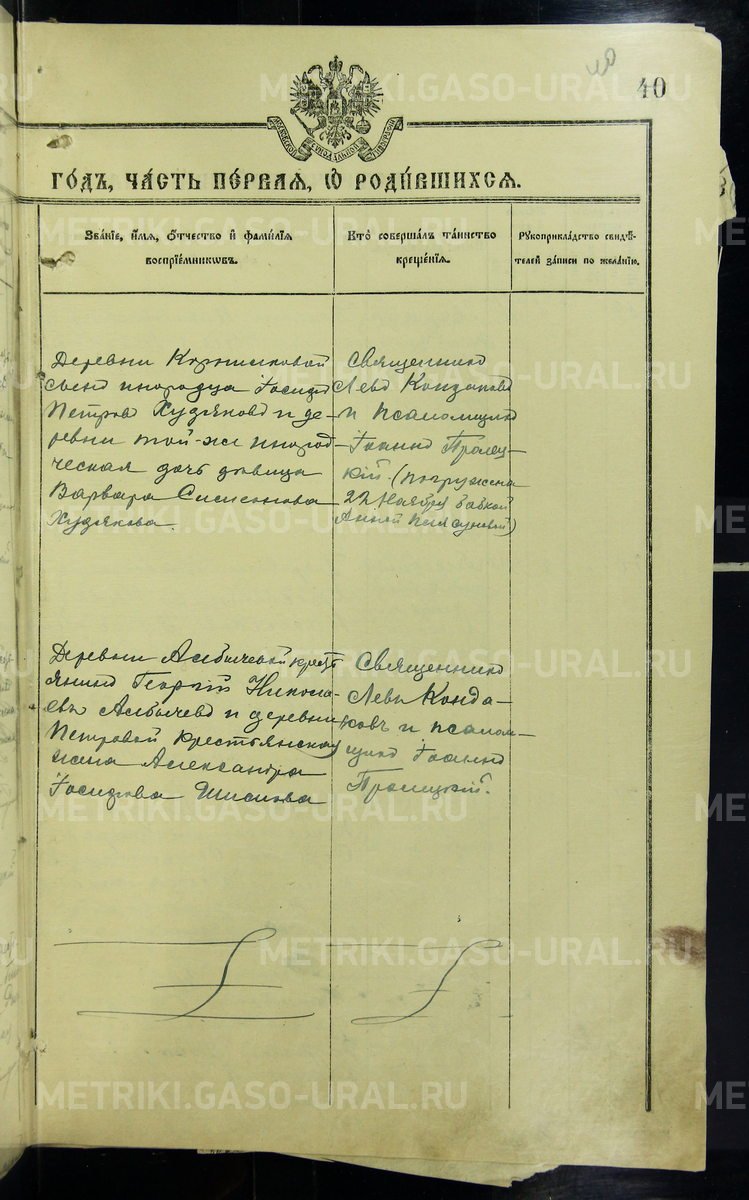 40
40
ГО́ДЪ, ЧА́СТЬ ПЕ́РВАѦ, Ѡ҆ РОДИ́ВШИХСѦ.
Зва́нїе, и҆́мѧ, ѻ҆́тчество и҆ фами́лїѧ
воспрїе́мникѡвъ.
Кто̀ соверша́лъ та́инство
креще́нїѧ.
Рꙋкоприкла́дство свидѣ́-
телей за́писи по жела́нїю.
Деревни
сынъ инородца Iосифъ
Петровъ Худяковъ и де-
ревни той-же инород-
ческая дочь девица
Варвара Сисоинова
Худякова.
Священникъ
Левъ Кондаковъ
и псаломщикъ
Iоаннъ Троиц-
кiй. (погружена
22 Ноября бабкой
Анной)
Деревни Алабычевой кресть
янинъ Георгiй Никола-
евъ Алабычевъ и деревни
Петровой крестьянская
жена Александра
Iосифова Шислова
Священникъ
Левъ Конда-
ковъ и псалом-
щикъ Iоаннъ
Троицкiй.
METRIKI.GASO-URAL.RU